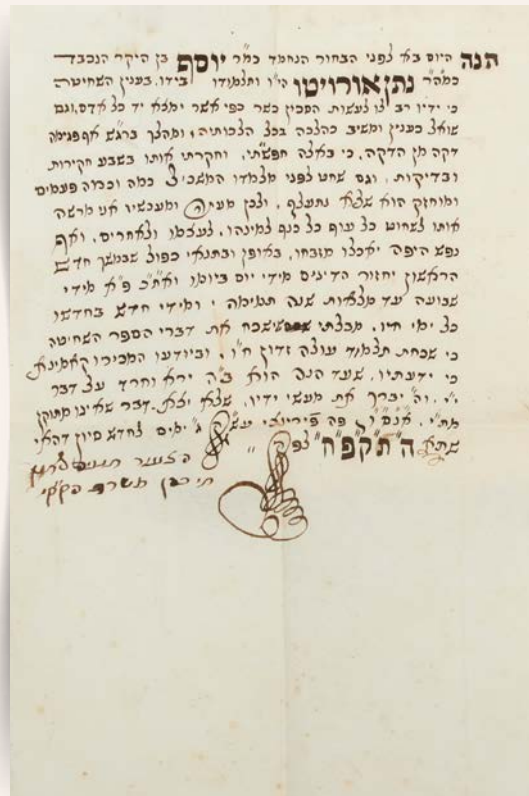 הנה היום בא לפני הבחור הנחמד כמ״ר יוסף בן היקר הנכבד
כמה״ר נתן אורויטו הי״ו ותלמודו בידו, בענין השחיטה
כי ידיו רב לו לעשות הסכין כשר כפי אשר ימצא יד כל אדם, וגם
שואל כענין ומשיב כהלכה בכל הלכותיה, ומהלך ברגש אף פגימה
דקה מן הדקה, כי באלה חפשתי, וחקרתי אותו בשבע חקירות
ובדיקות, וגם שחט לפני מלמדו המשכיל כמה וכמה פעמים
ומוחזק הוא שלא נתעלף, ולכן מעתה ומעכשיו אני מרשה
אותו לשחוט כל עוף כל כנף למינהו, לעצמו ולאחרים, ואף
נפש היפה יאכלו מזבחו, באופן ובתנאי כפול שבמשך חדש
הראשון יחזור הדינים מידי יום ביומו ואח״כ פ״א מידי
שבוע עד מלאות שנה תמימה ומידי חדש בחדשו
כל ימי חייו, מבלתי שכח את דברי הספר השחיטה
כי שכחת תלמוד עולה זדון ח״ו, וביודעו המכירו קאמינא
כי ידעתיו, שעד הנה הוא ב״ה ירא וחרד על דבר
י״י, וה׳ יברך את מעשי ידיו, שלא יצא דבר שאינו מתוקן
מת״י, אנס״ו, פה פירינצי עש״ק ג׳ ימים לחדש סיון דהאי
שתא ה״ת״ק״פ״ח לפ״ק
הצעיר